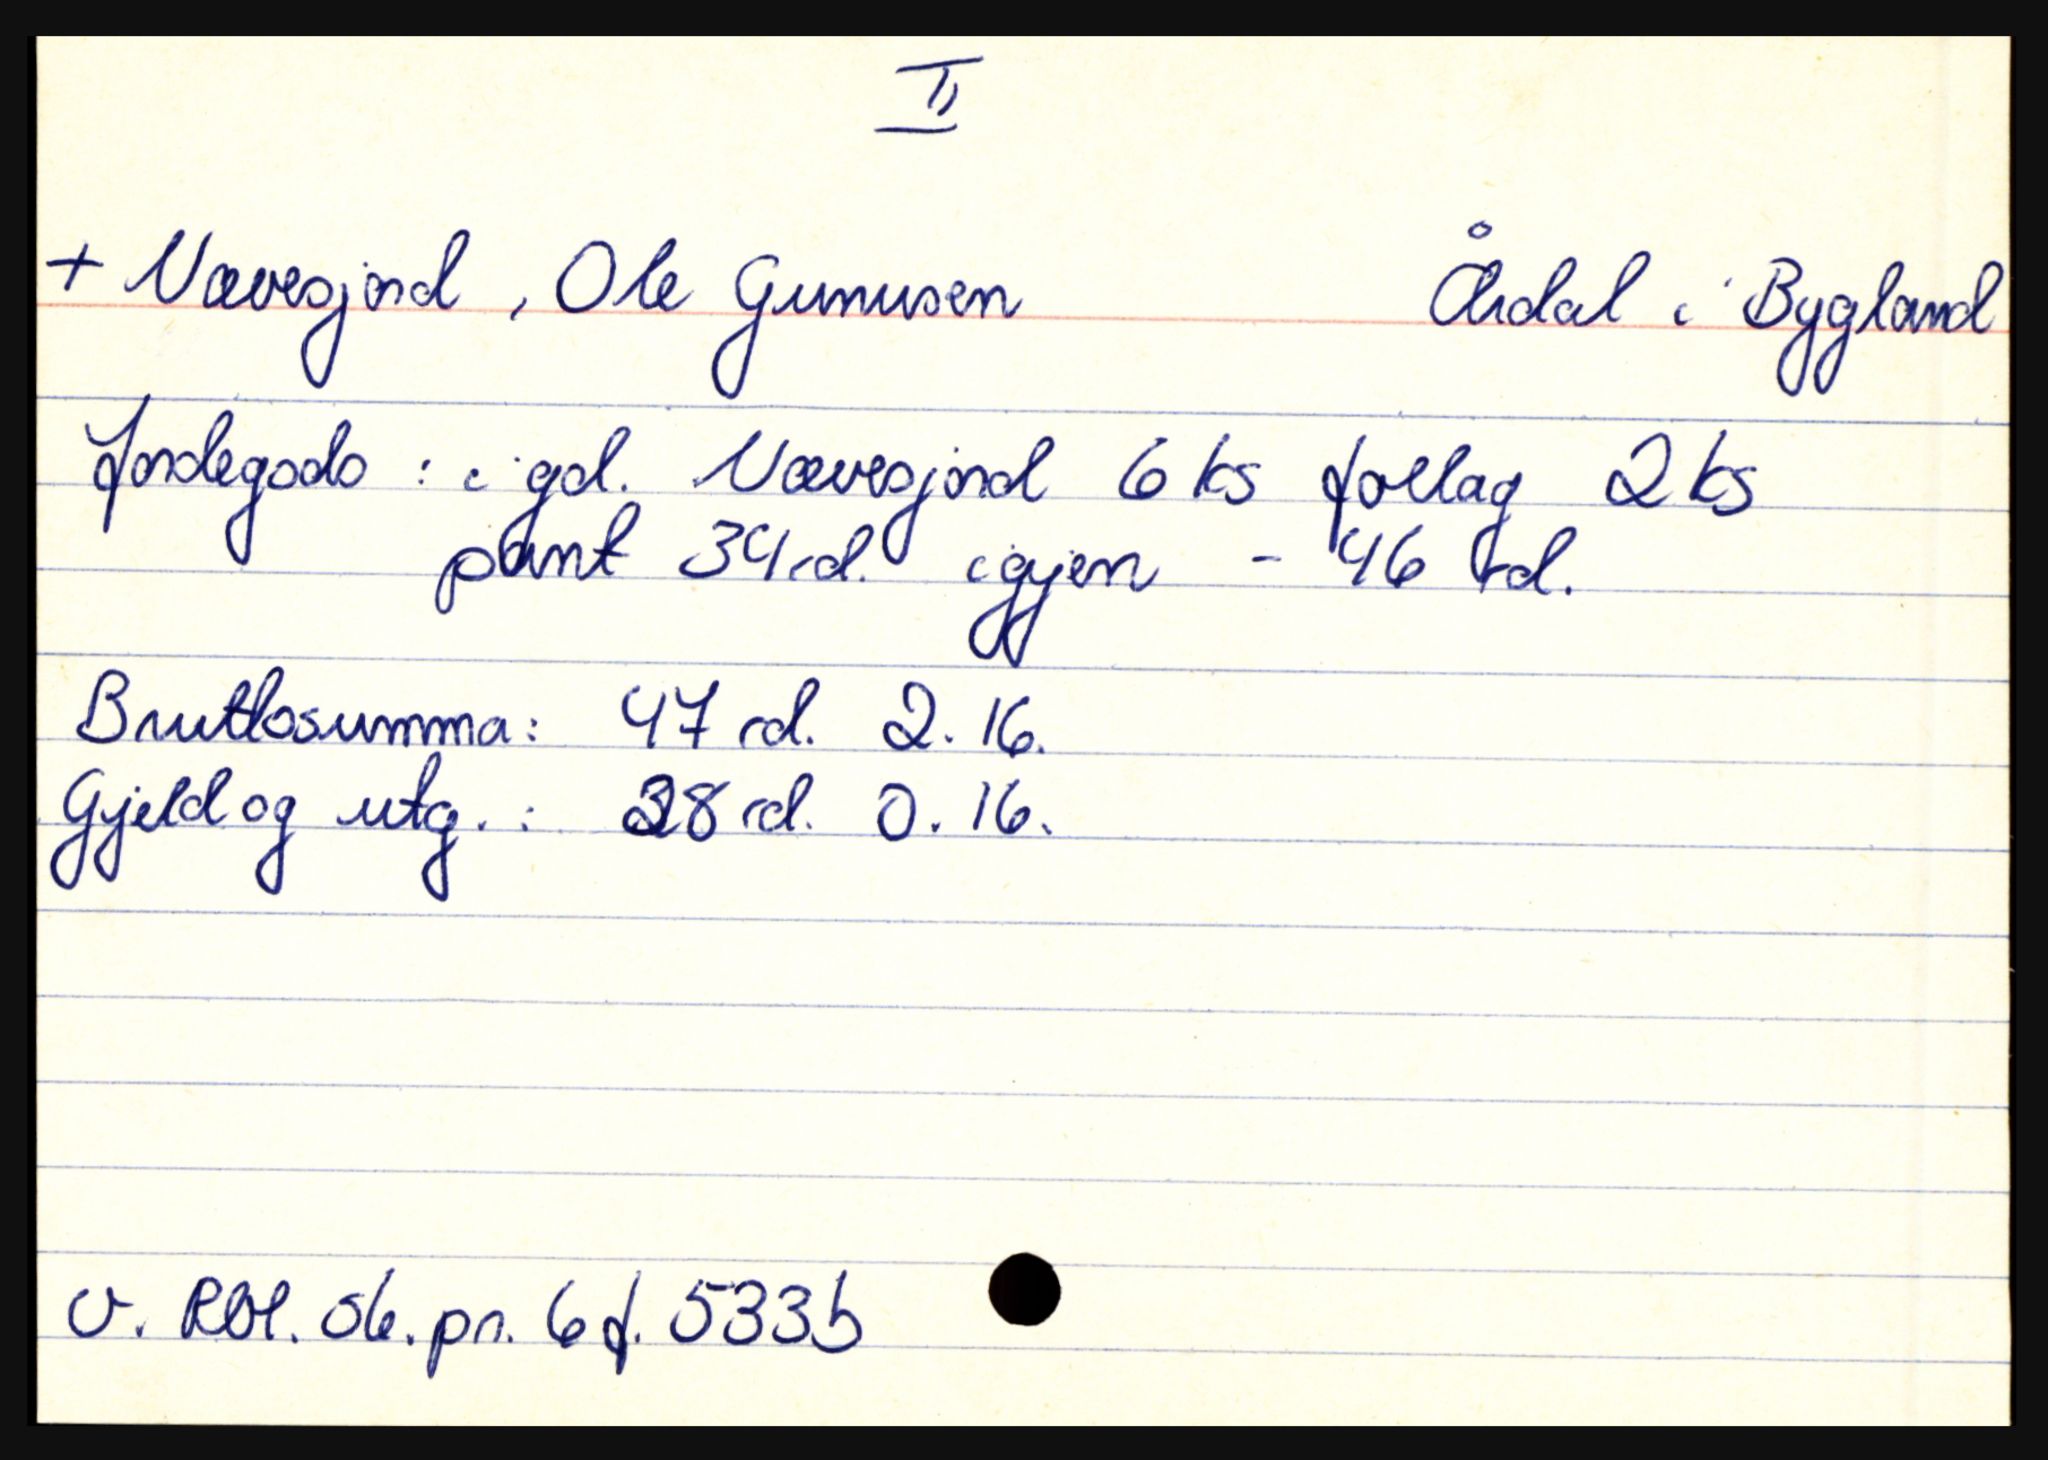 II
+ Nævesjord, Ole Gunnusen Årdal i Bygland
Jordegods : i gd. Nævesjord 6 ks forlag 2 ks
pant 34 rd. igjen - 46 rd.
Bruttosumma: 47 rd. 2. 16.
Gjeld og utg. : 38 rd. 0. 16.
V. Rbl. sk. pr. 6 f. 533b